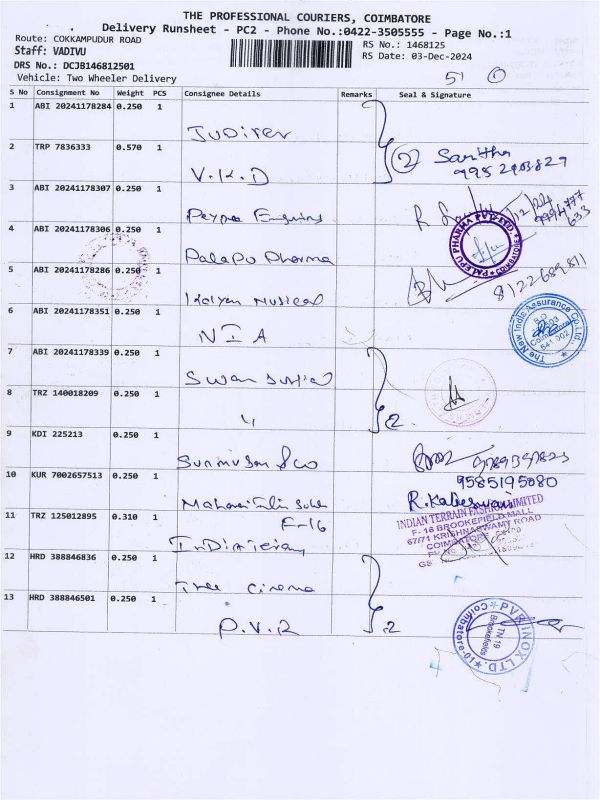 THE PROFESSIONAL COURIERS, COIMBATORE
Delivery Runsheet - PC2 - Phone No.:0422-3505555 - Page No.:1
Route: COKKAMPUDUR ROAD
RS No.: 1468125
Staff: VADIVU
RS Date: 03-Dec-2024
DRS No.: DCJB146812501
Vehicle: Two Wheeler Delivery
51 0
S No Consignment No Weight PCS Consignee Details Remarks Seal & Signature
1 ABI 20241178284 0.250 1
Jupiter
2 TRP 7836333 0.570 1
V.K.D
2 Saritha
995 2903829
3 ABI 20241178307 0.250 1
4 ABI 20241178306 0.250 1
Palapu Pharma
PALEPU PHARMA PVT LTD. COIMBATORE
5 ABI 20241178286 0.250 1
Kalyan Musical
8122689811
6 ABI 20241178351 0.250 1
N I A
The New India Assurance Co. Ltd.
Coimbatore
641 002
7 ABI 20241178339 0.250 1
Swan
8 TRZ 140018209 0.250 1
"
2
9 KDI 225213 0.250 1
9585195080
10 KUR 7002657513 0.250 1
F-16
R.Kaleswari
11 TRZ 125012895 0.310 1
INDIAN TERRAIN FASHION LIMITED
F- 16 BROOKEFIELD MALL
67/71 KRISHNASWAMY ROAD
COIMBATORE
12 HRD 388846836 0.250 1
cinema
13 HRD 388846501 0.250 1
P.V.R
2
PVR INOX LTD. Coimbatore-01
TN 19
Brookefields